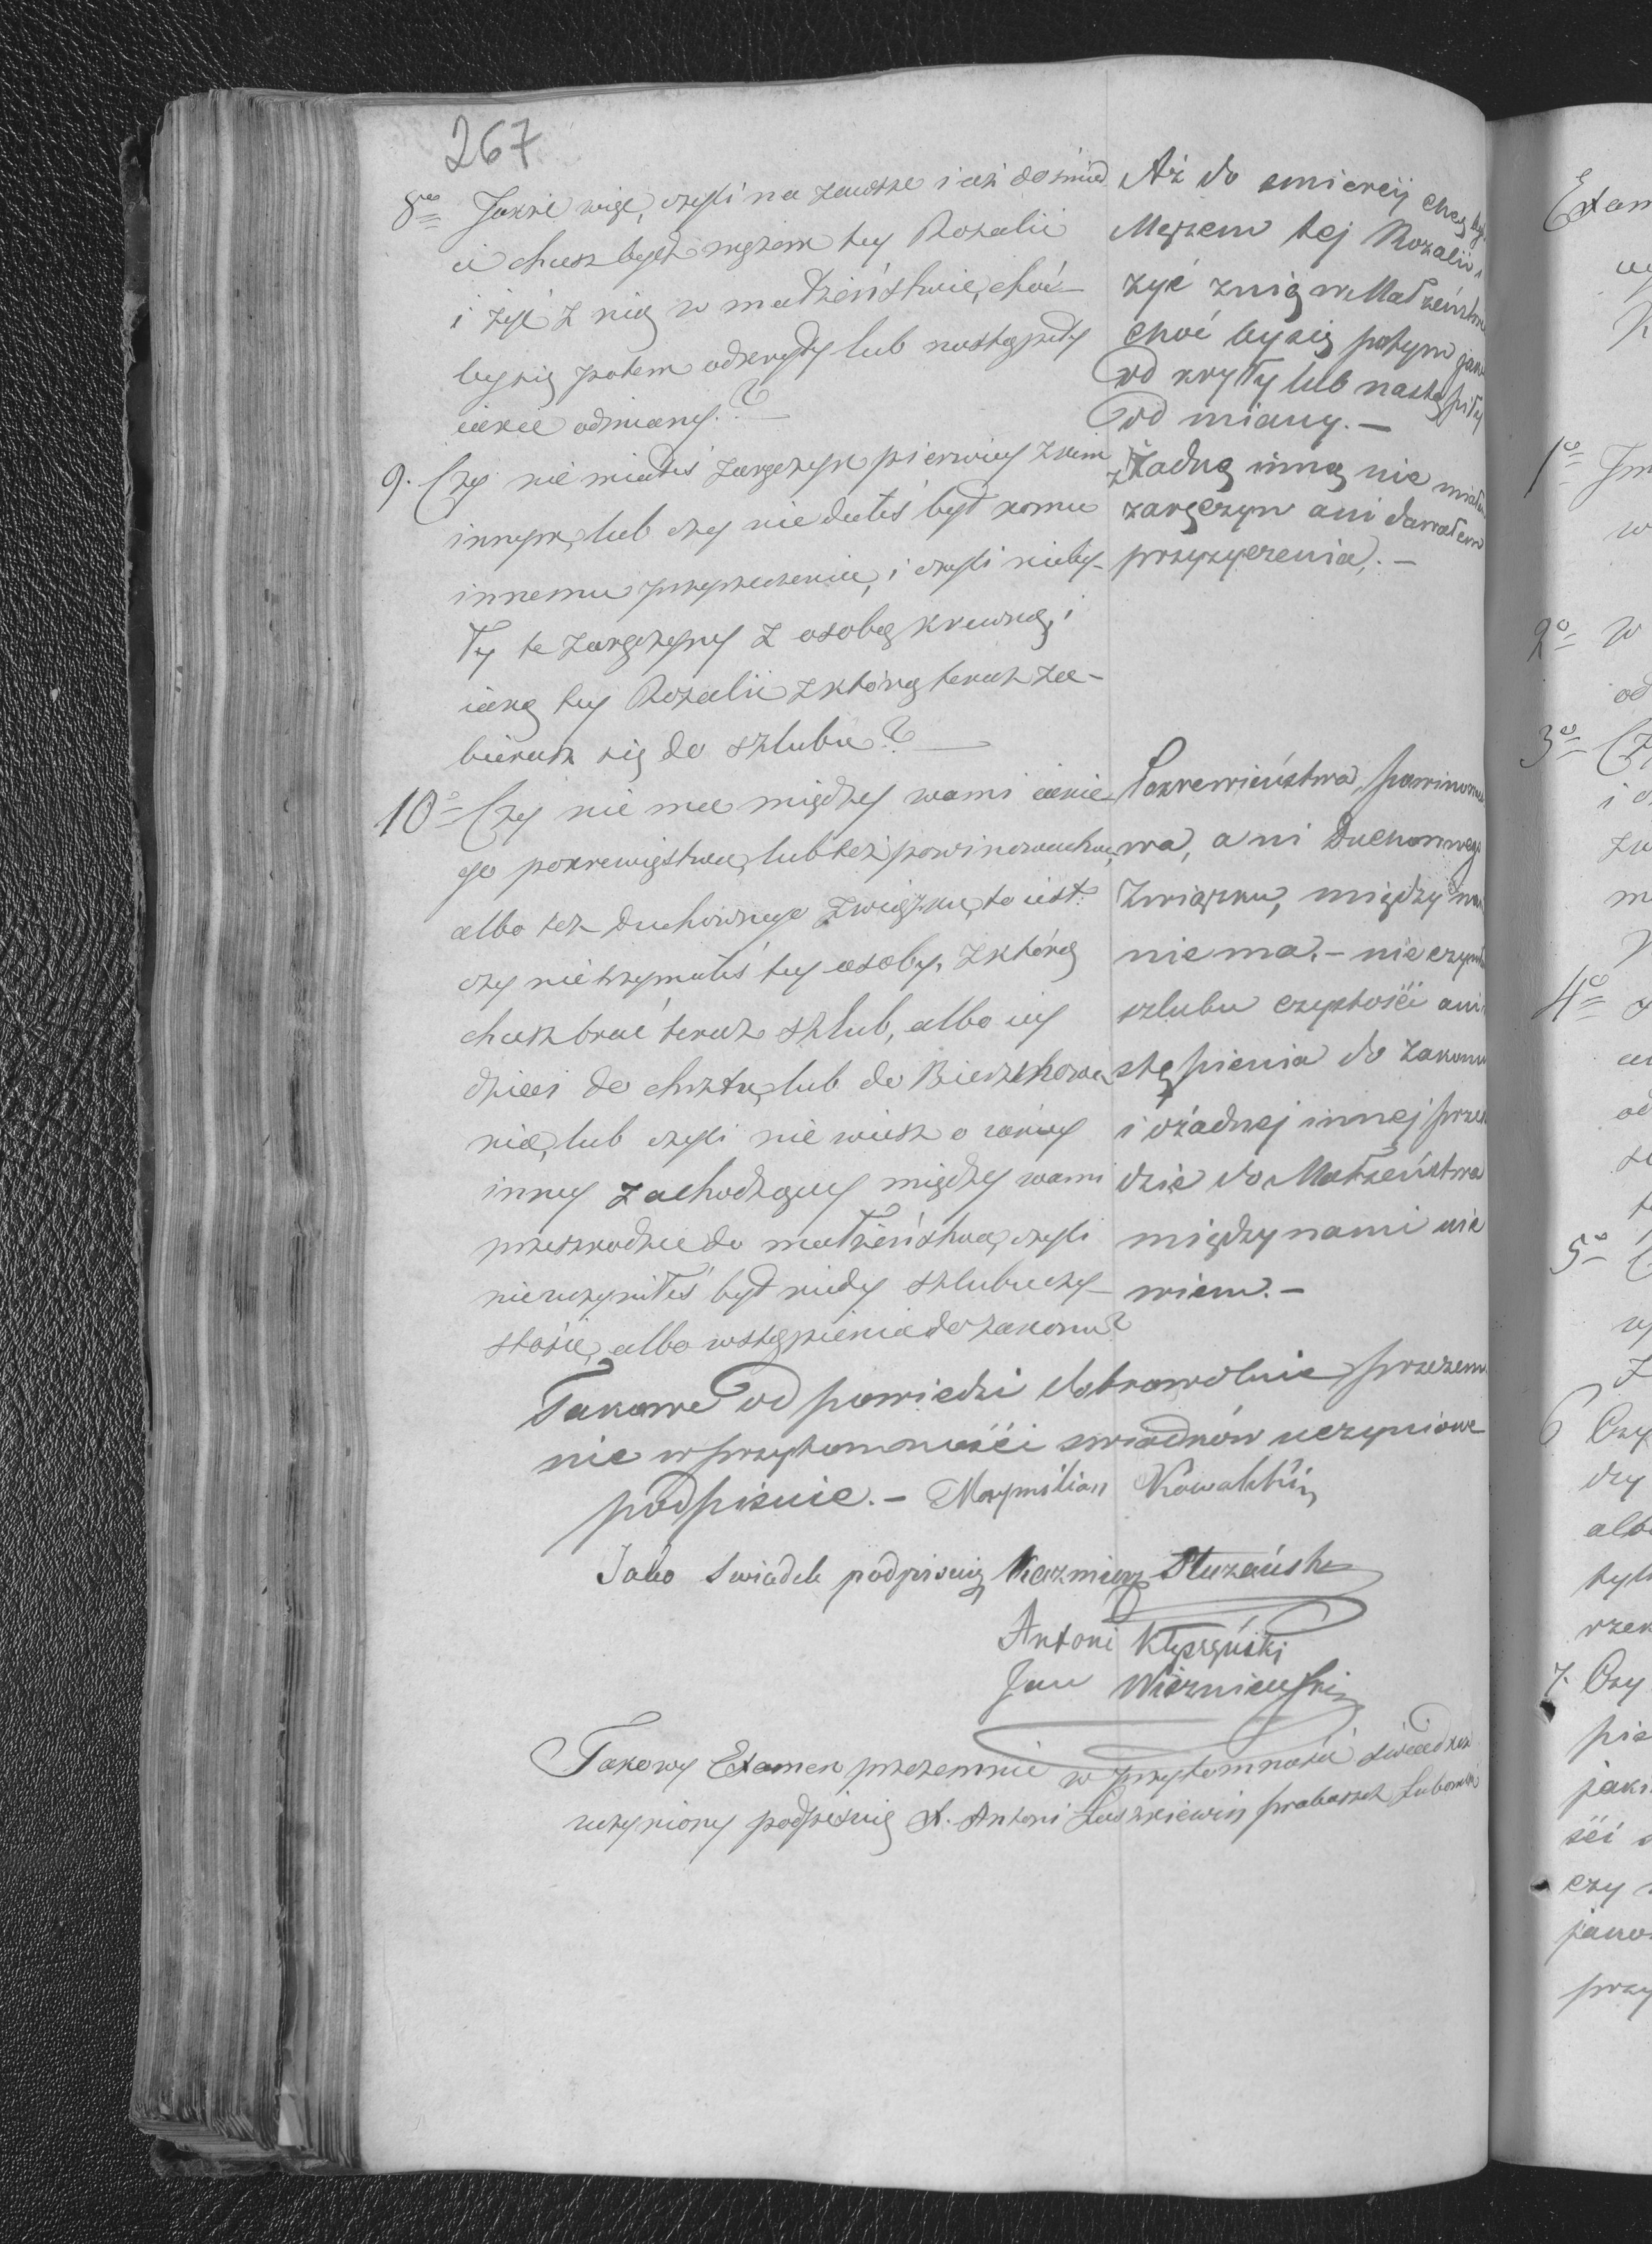 267
8vo Jakże więc, czyli na zawsze i aż do śmier
ci chcesz bydź mężem tey Rozalii
i żyć z nią w małżeństwie, choć
by się potem odkryły lub nastąpiły
iakie odmiany.?
Aż do smiercij chcę być
Mężem tej Rozalii i
żyć znią w Małżeństw
choć by się potym jak
od kryły lub nastąpiły
od miany. —
9. Czy nie miałeś zaręczyn pierwiey z kim
innym, lub czy nie dałeś był komu
innemu przyrzeczenia, i czyli nieby-
ły te zaręczyny z osobą krewną
iaką tey Rozalii z którą teraz za-
bierasz się do szlubu? —
z Żadną inną nie miałem
zaręczyn ani dawałem
przyrzyczenia. —
10o Czy nie ma między wami iakie
go pokrewięstwa, lub też powinowactwa,
albo też duchownego związku, to iest:
czy nie trzymałeś tey osoby, z którą
chcesz brać teraz szlub, albo iey
dzieci do chrztu, lub do Bierzmowa
nia, lub czyli nie wiesz o iakiey
inney zachodzącey między wami
przeszkodzie do małżeństwa, czyli
nie uczyniłeś był kiedy szlubu czy-
stości, albo wstąpienia do zakonu?
Pokrewieństwa, powinowac
wa, ani Duchownego
Związku, między na
nie ma. — nie czyni
szlubu czystości ani
stąpienia do zakonu
i o żadnej innej prze
dzie do Małżeństwa
między nami nie
wiem. —
Takowe od powiedzi dobrowolnie przezem
nie w przytomności swiadków uczynione
podpisuie. — Maxymilian Kowalski
Jako Swiadek podpisuię Kazmierz Stuzański
Antoni Kłyszyński
Jan Wiszniewski
Takowy Examen przezemnie w przytomności świadków
uczyniony podpisuię X. Antoni proboszcz
Exam
1o
w
2o w
od
3o
4o
5o
6 Czy
dzy
albo
7. Czy
jaki
ści
czy
jako
przy